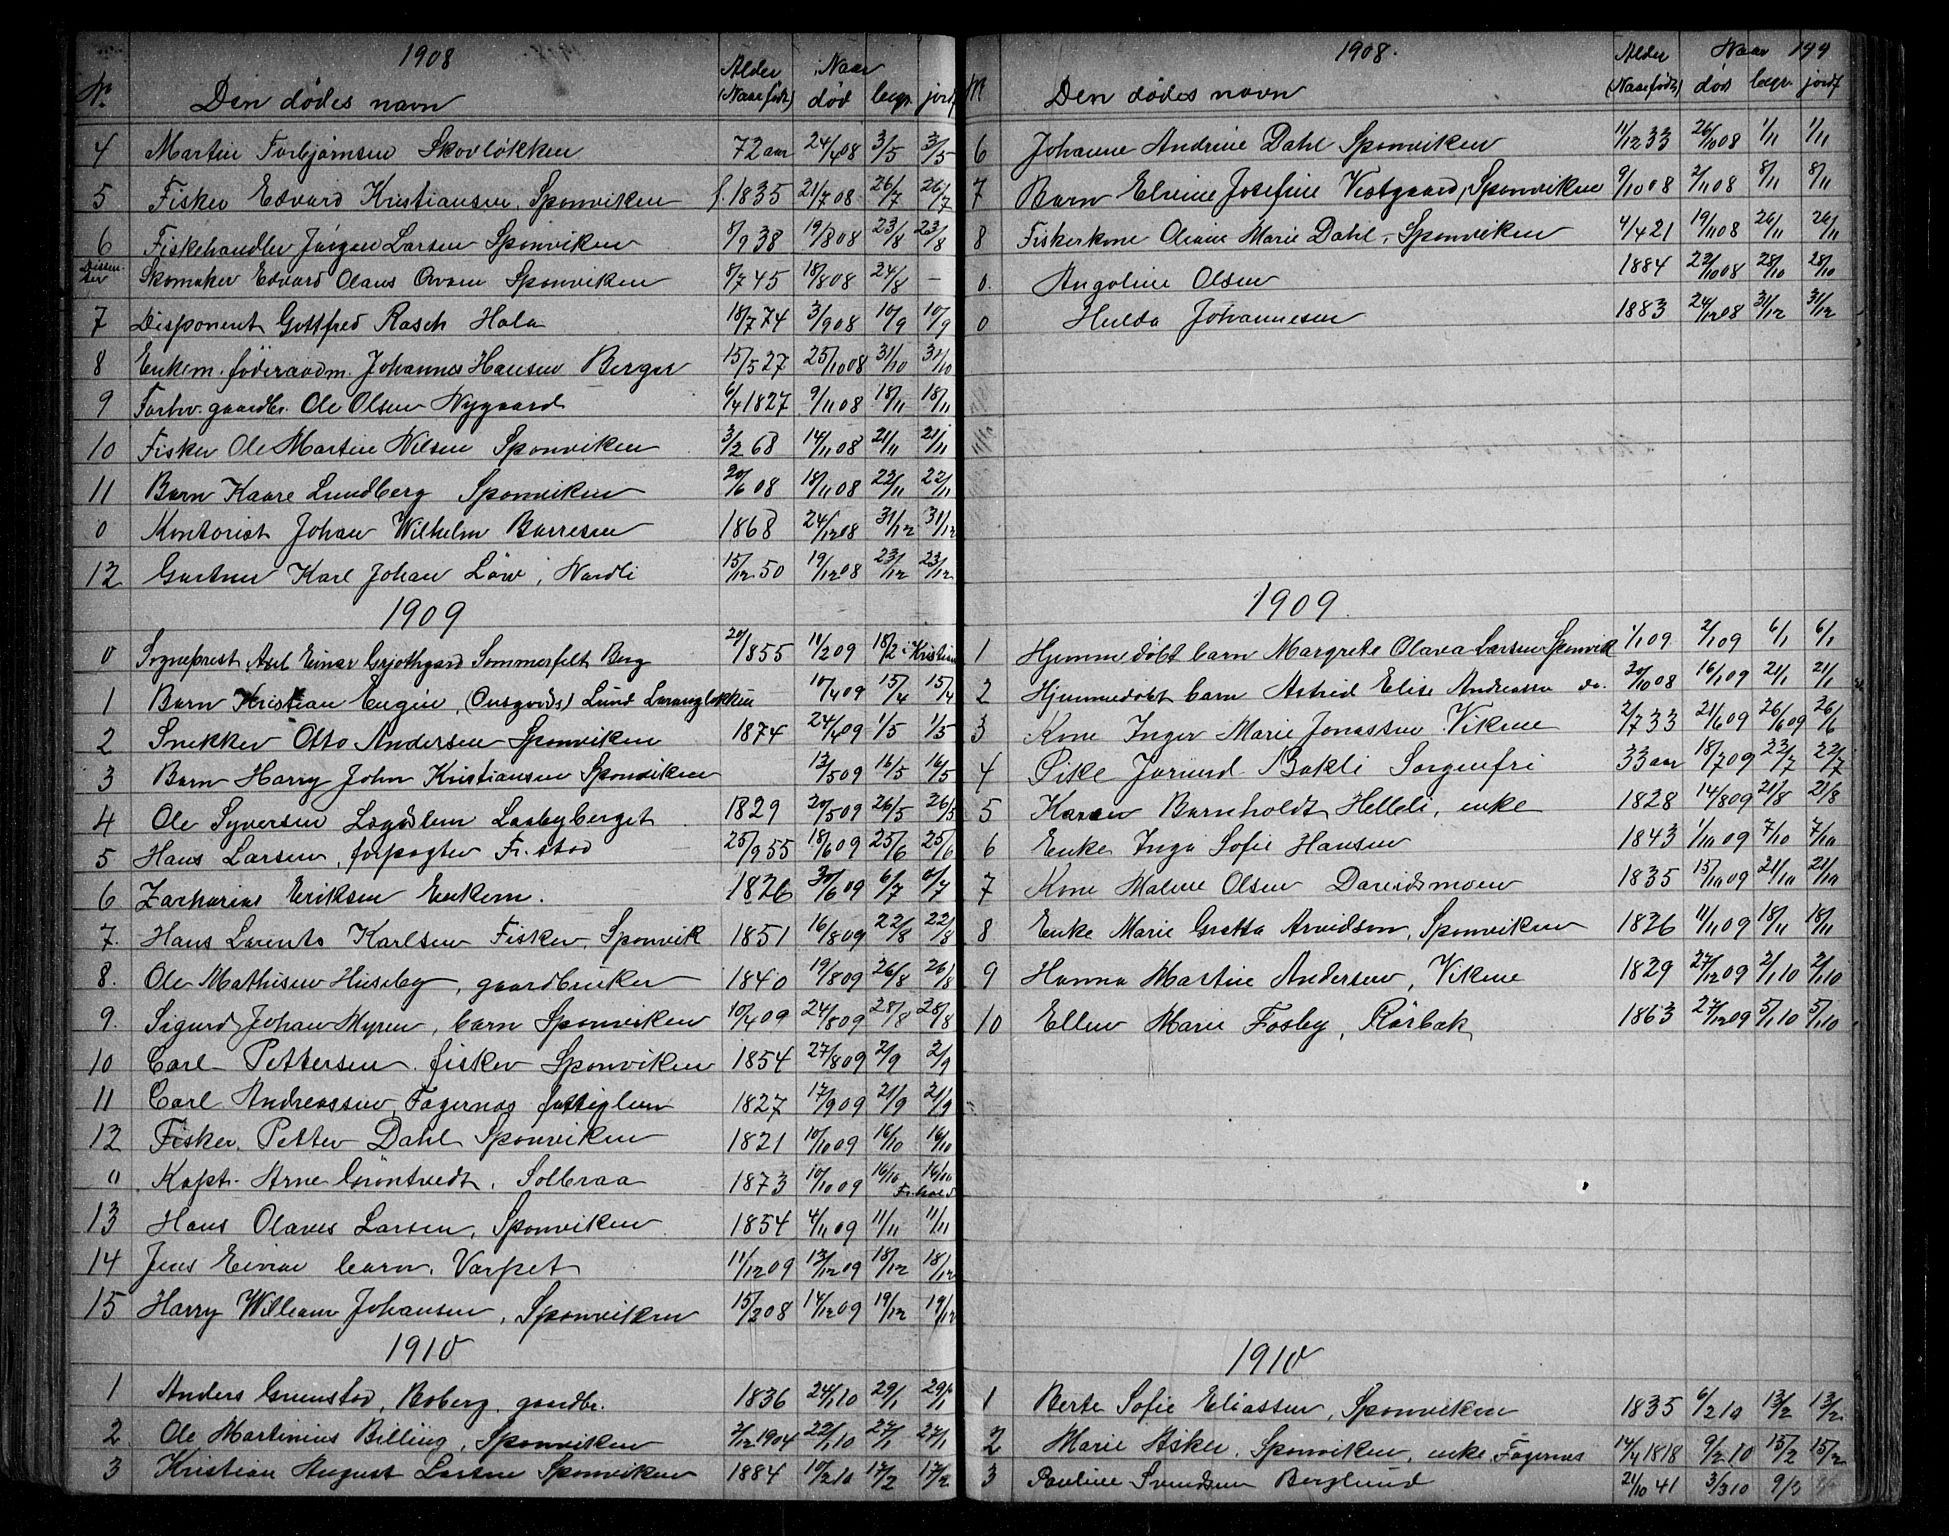 1908
No. Den dødes navn Alder (Naar født) Naar død begr. jordf
4 Martin Torbjørnsen Skovløkken 72 aar 24/4 08 3/5 3/5
5 Fisker Edvard Kristiansen, Sponviken f. 1835 21/7 08 26/7 26/7
6 Fiskehandler Jørgen Larsen Sponviken 8/9 38 19/8 08 23/8 23/8
Dissenter Skomaker Edvard Olaus Sponviken 8/7 45 18/8 08 24/8 —
7 Disponent Gottfred Rasch Hola 18/7 74 3/9 08 10/9 10/9
8 Enkem. føderaadm. Johannes Hansen Berger 15/5 27 25/10 08 31/10 31/10
9 Forhv. gaardbr. Ole Olsen Nygaard 6/4 1827 9/11 08 18/11 18/11
10 Fisker Ole Martin Nilsen Sponviken 3/2 68 14/11 08 21/11 21/11
11 Barn Kaare Lundberg Sponviken 20/6 08 18/11 08 22/11 22/11
0 Kontorist Johan Wilhelm Barresen 1868 24/12 08 31/12 31/12
12 Gartner Karl Johan Löw, Nordli 15/12 50 19/12 08 23/12 23/12
1909
0 Sogneprest Axel Einar Grjothgard Sommerfelt Berg 20/1 855 10/2 09 18/2 i Kristia
1 Barn Kristian Eugen, (Ousgvods) Lund 10/4 09 15/4 15/4
2 Snekker Otto Andersen Sponviken 1874 24/4 09 1/5 1/5
3 Barn Harry John Kristiansen Sponviken 13/5 09 16/5 16/5
4 Ole Syversen Lægdslem Laabyberget 1829 20/5 09 26/5 26/5
5 Hans Larsen, forpagter Fr.stad 25/9 55 18/6 09 25/6 25/6
6 Zacharias Eriksen Enkem. 1826 30/6 09 6/7 6/7
7. Hans Lorents Karlsen Fisker, Sponvik 1851 16/8 09 22/8 22/8
8. Ole Mathisen Huseby, gaardbruker 1840 19/8 09 26/8 26/8
9. Sigurd Johan Myren, barn Sponviken 10/4 09 24/8 09 28/8 28/8
10 Carl Pettersen fisker Sponviken 1854 27/8 09 2/9 2/9
11 Carl Andreassen, Fagernæs fattiglem 1827 17/9 09 21/9 21/9
12 Fisker, Petter Dahl Sponviken 1821 10/10 09 16/10 16/10
0 Kapt. Arne Gröntvedt, Solbraa 1873 10/10 09 16/10 16/10 Fr.hald
13 Hans Olaves Larsen, Sponviken 1854 4/11 09 11/11 11/11
14 Jens Einar barn, Varpet 11/12 09 13/12 09 18/12 18/12
15 Harry William Johansen, Sponviken 15/2 08 14/12 09 19/12 19/12
1910
1 Anders Grimstad, Boberg, gaardbr. 1836 24/1 10 29/1 29/1
2 Ole Martinius Billing, Sponviken 3/12 1904 22/1 10 27/1 27/1
3 Kristian August Larsen Sponviken 1884 10/2 10 17/2 17/2
1908. 199
No. Den dødes navn Alder (Naar født) Naar død begr. jordf
6 Johanne Andrine Dahl Sponviken 11/12 33 26/10 08 1/11 1/11
7 Barn Elvine Josefine Vestgaard, Sponviken 9/10 08 2/11 08 8/11 8/11
8 Fiskerkone Oleane Marie Dahl, Sponviken 4/4 21 19/11 08 26/11 26/11
0. Angoline Olsen 1884 22/10 08 28/10 28/10
0 Hulda Johannesen 1883 24/12 08 31/12 31/12
1909.
1 Hjemmedøbt barn Margrete Olava Larsen Sponvik 1/1 09 2/1 09 6/1 6/1
2 Hjemmedøbt barn Astrid Elise Andreassen do. 30/10 08 16/1 09 21/1 21/1
3 Kone Inger Marie Jonassen Vikene 2/7 33 21/6 09 26/6 09 26/6
4 Pike Jorund Bakli Sorgenfri 33 aar 18/7 09 22/7 22/7
5 Karen Barnholdt Helleli, enke 1828 14/8 09 21/8 21/8
6 Enke Inga Sofie Hansen 1843 1/10 09 7/10 7/10
7 Kone Malene Olsen Davidsmoen 1835 15/10 09 21/10 21/10
8 Enke Marie Gretta Arvidson, Sponviken 1836 11/11 09 18/11 18/11
9 Hanna Martine Andersen, Vikene 1829 27/12 09 2/1 10 2/1 10
10 Ellen Marie Fosby, Rørbæk 1863 27/12 09 5/1 10 5/1 10
1910
1 Berte Sofie Eliassen, Sponviken 1835 6/2 10 13/2 13/2
2 Marie Asker, Sponviken, enke Fagernæs 14/4 1818 9/2 10 15/2 15/2
3 Pauline Svendsen Berglund 21/10 41 3/3 10 9/3